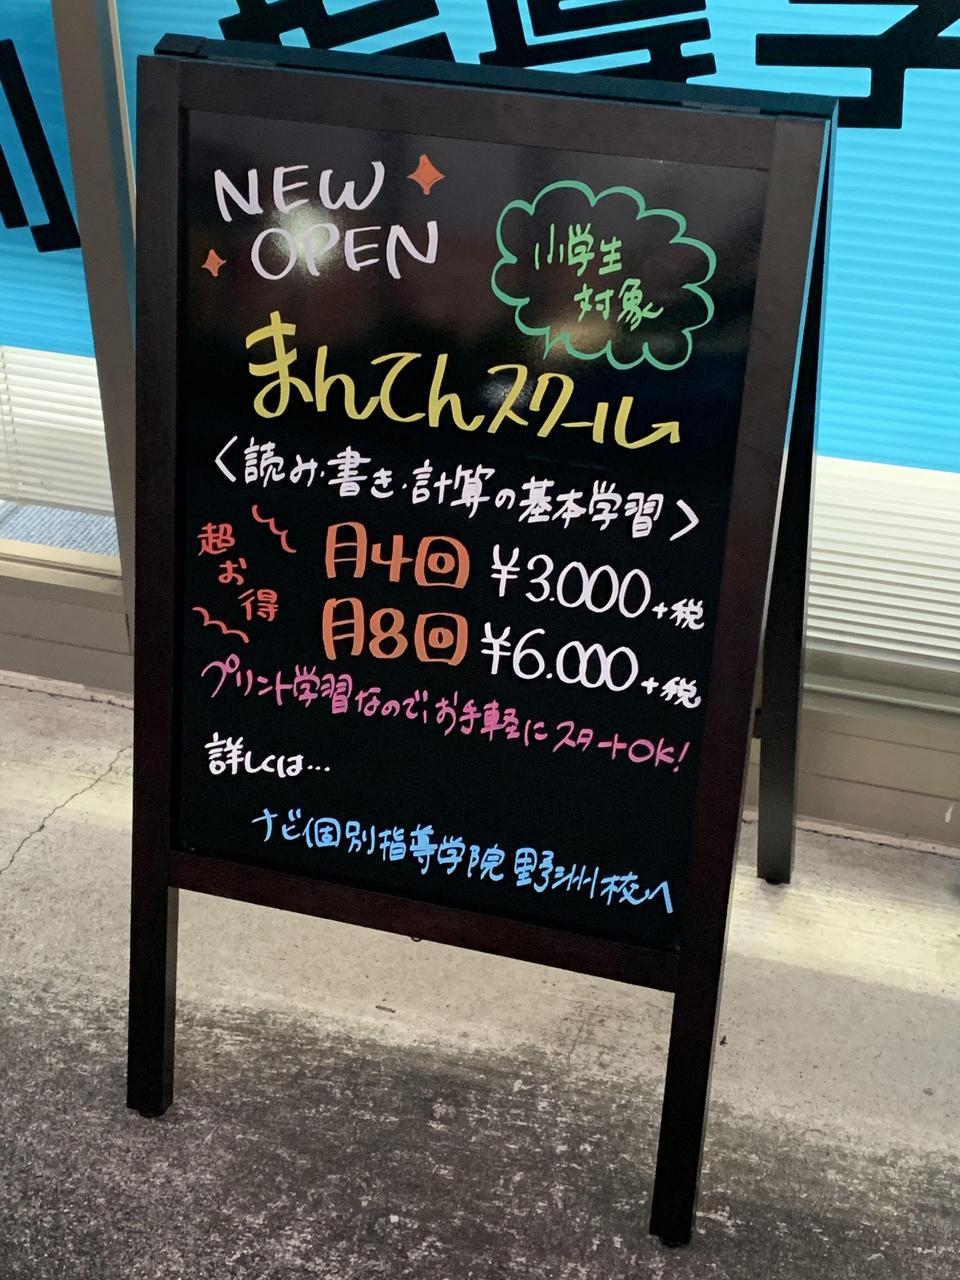 別指導学
NEW
OPEN
小学生
対象
まんてんスクール
〈読み・書き・計算の基本学習〉
超
お
得
月4回 ¥3.000+税
月8回 ¥6.000+税
プリント学習なので、お手軽にスタートOK!
詳しくは…
ナビ個別指導学院 野洲校へ